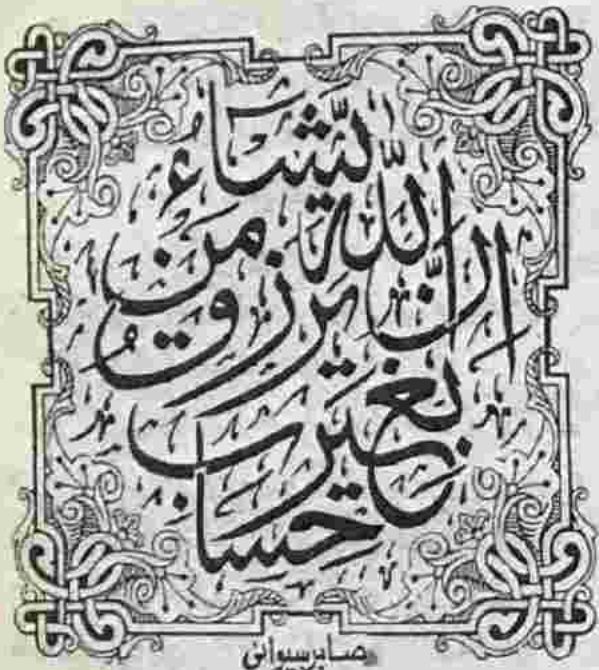 ان الله يرزق من يشاء
بغير حساب
صابر سيوانی